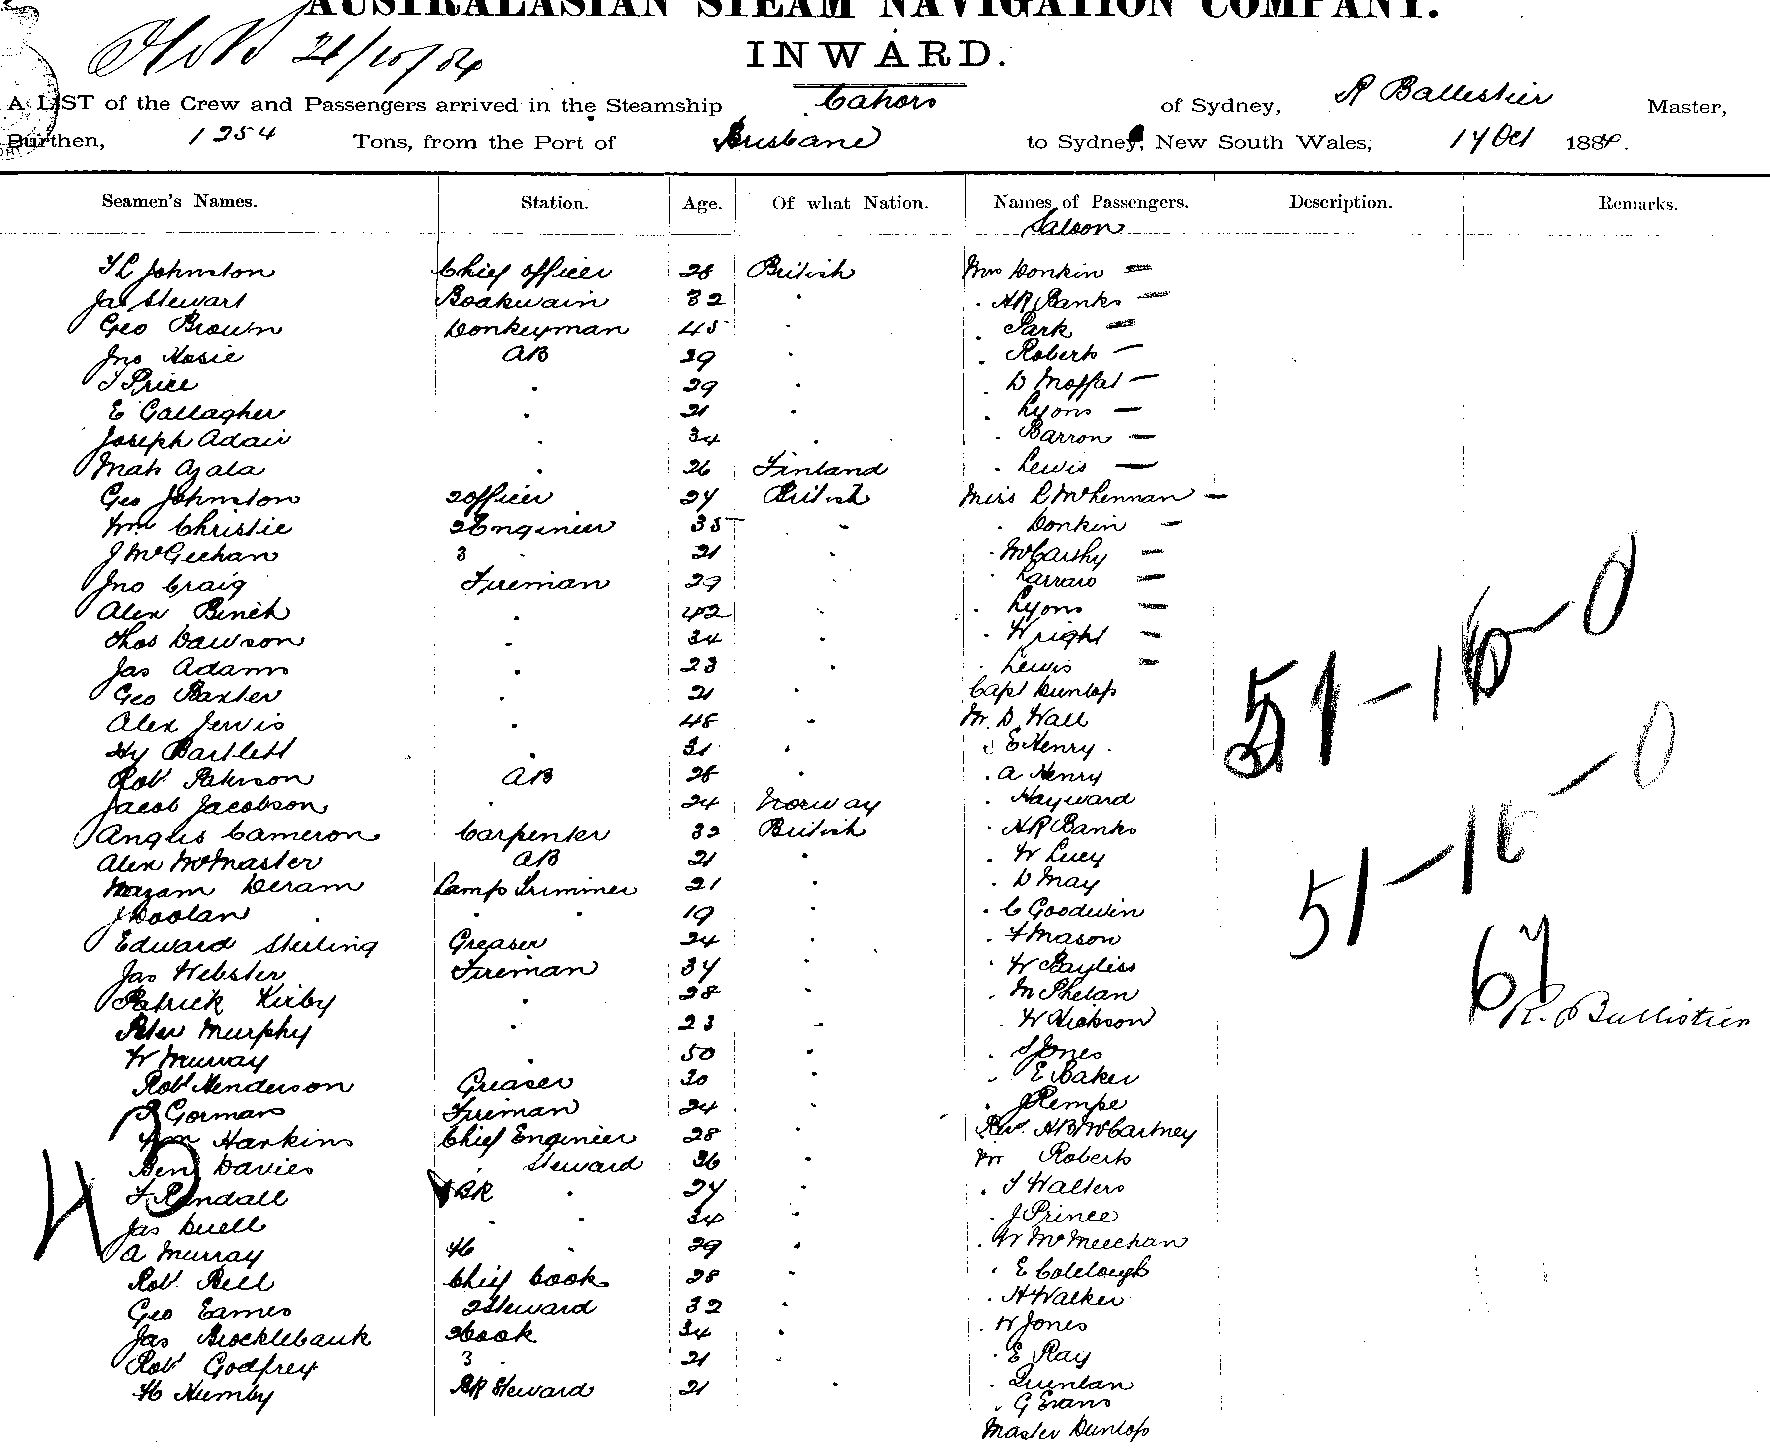 AUSTRALASIAN STEAM NAVIGATION COMPANY.
INWARD.
A LIST of the Crew and Passengers arrived in the Steamship Cahors of Sydney, R Ballestier Master,
Burthen, 1254 Tons, from the Port of Brisbane to Sydney, New South Wales, 17 Oct 1884.
Seamen's Names. Station. Age. Of what Nation. Names of Passengers. Description. Remarks.
Saloon
Johnston Chief Officer 28 British Mrs Donkin —
Jas Stewart Boatswain 32 . . AR Banks —
Geo Brown Donkeyman 45 . . Park —
Jno Hosie AB 29 . . Roberts —
T Price . 29 . . D Moffat —
E Gallagher . 21 . . Lyons —
Joseph Adair . 34 . . Barron —
Math Ajala . 26 Finland . Lewis —
Geo Johnston 2 Officer 27 British Miss McLennan —
Wm Christie 2 Engineer 35 " . Donkin —
J McGeehan 3 . 21 . . McCarthy —
Jno Craig Fireman 29 . . —
Alex Binch . 42 . . Lyons —
Thos Dawson . 34 . . Wright —
Jas Adams . 23 . . Lewis —
Geo Baxter . 21 . Capt Dunlop
Alex Jervis . 48 . Mr D Wall
Hy Bartlett . 31 . . E Henry
Robt Paterson AB 28 . . A Henry
Jacob Jacobson . 24 Norway . Hayward
Angus Cameron Carpenter 32 British . AR Banks
Alex McMaster AB 21 . . W Lucy
Deram Lamp Trimmer 21 . . D May
J Doolan . . 19 . C Goodwin
Edward Sterling Greaser 24 . . Mason
Jas Webster Fireman 37 . . W Bayliss
Patrick Kirby . 28 . . M Phelan
Peter Murphy . 23 . . W Dickson
W Murray . 50 . . S Jones
Robt Henderson Greaser 30 . . E Baker
P Gorman Fireman 24 . . J Rempe
Wm Harkins Chief Engineer 28 . Rev. AB McCartney
Ben Davies . Steward 36 . Mr Roberts
F Rendall . 27 . . T Walters
Jas Duell . . 34 . . J Prince
A Murray . 29 . . W McMeechan
Robt Bell Chief Cook 28 . . E Colclough
Geo Eames 2 Steward 32 . . H Walker
Jas Brocklebank 2 Cook 34 . . W Jones
Robt Godfrey 3 . 21 . . E Ray
H Humby Steward 21 . . Quinlan
. G Evans
Master Dunlop
51 – 16 – 0
51 – 16 – 0
67
R. Ballistier
42